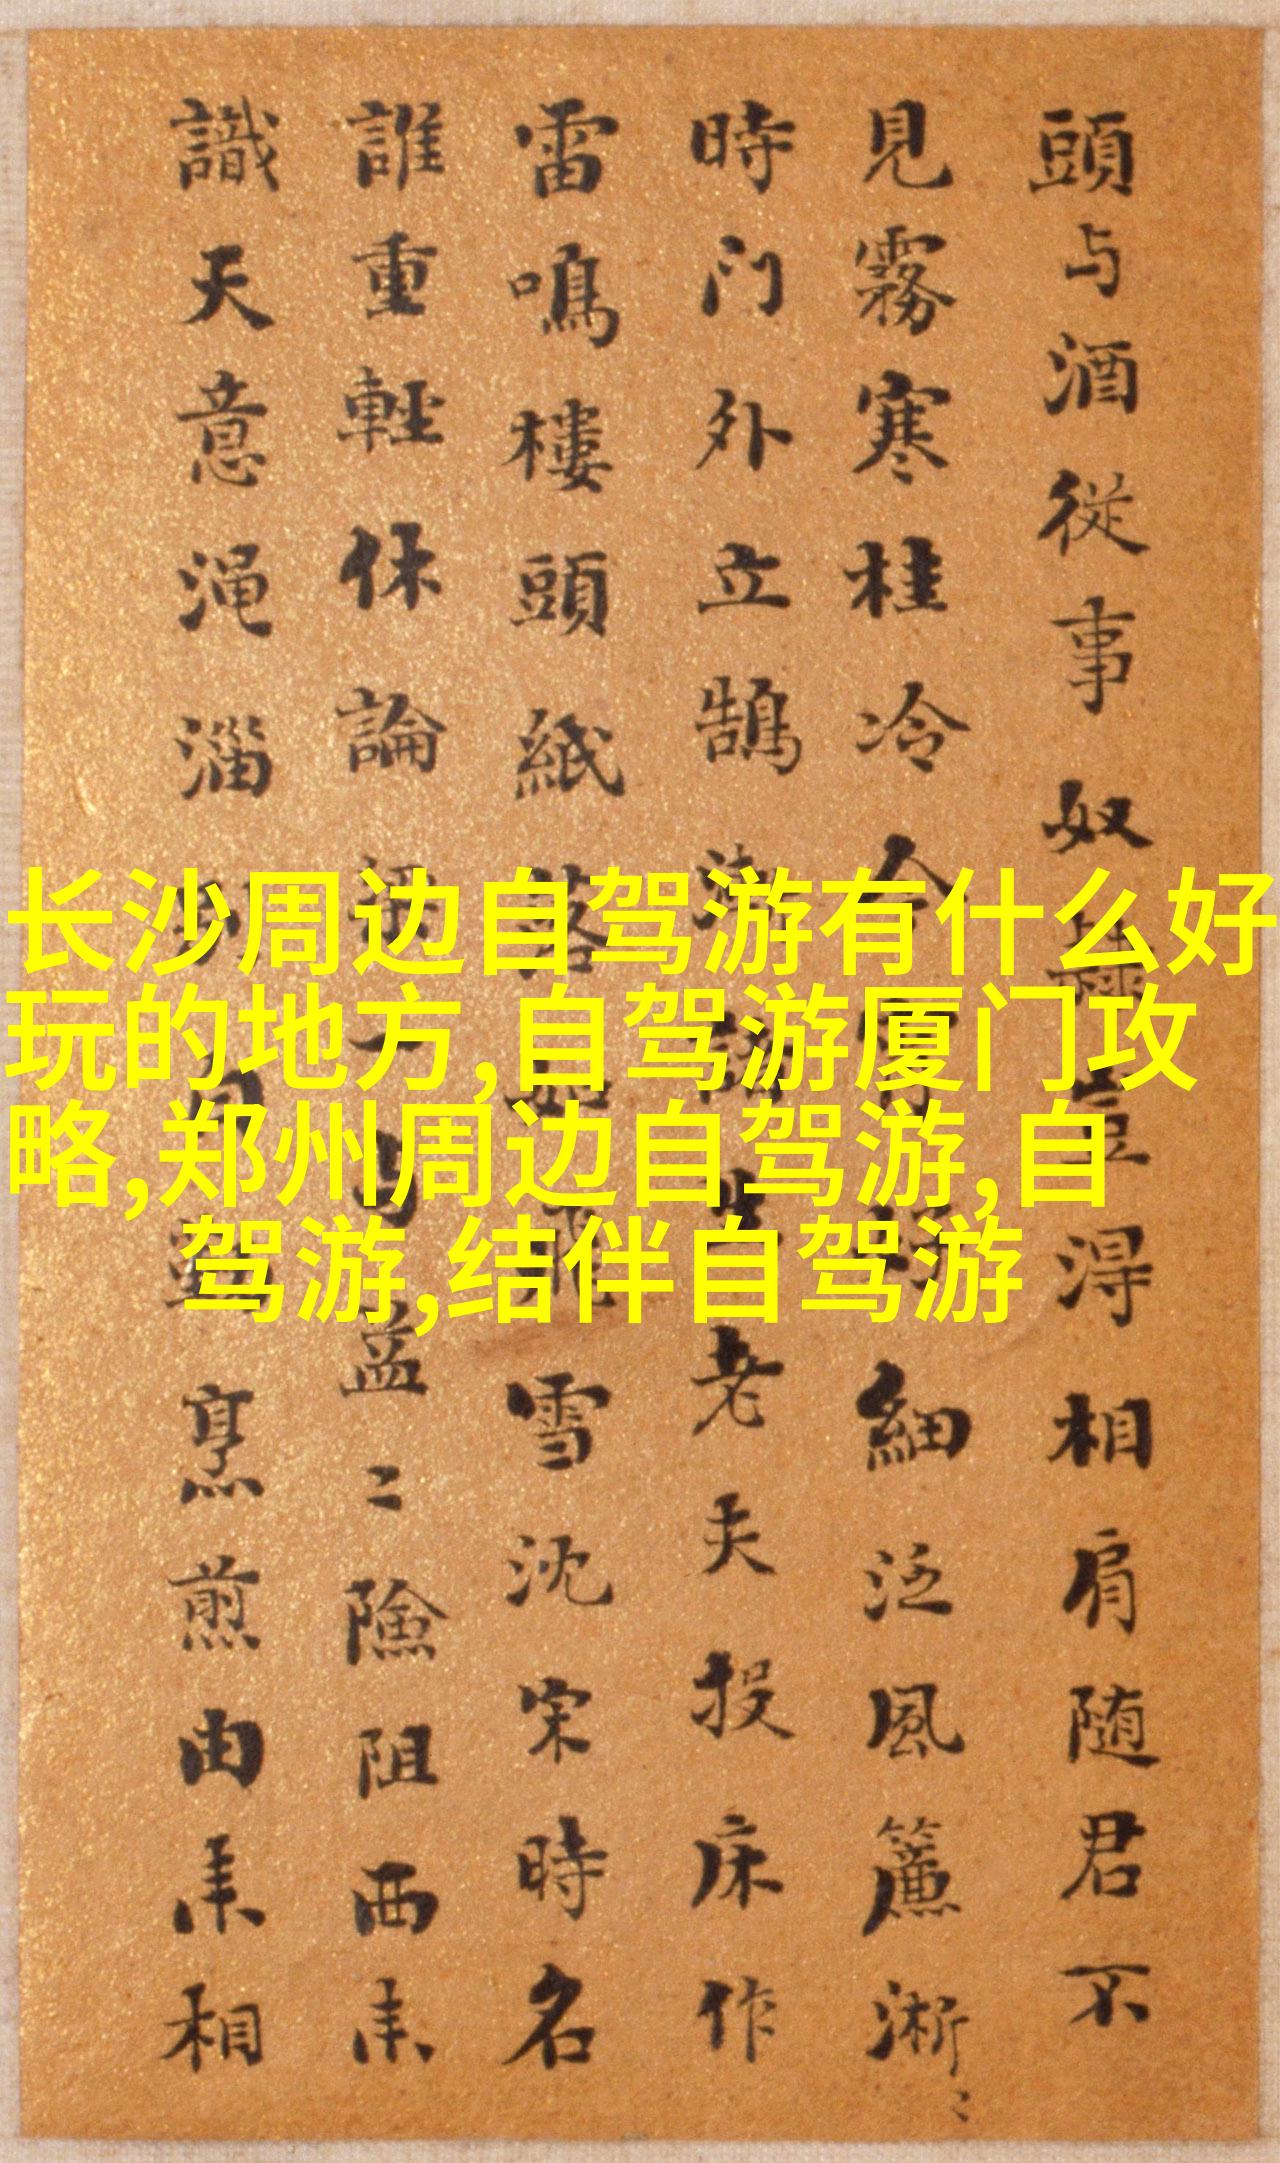 頭与酒從事奴豈淂相肩随君不
見霧寒桂冷細泛風簾淅〻
時门外立鵠老夫投床作
雷鳴樓頭紙落雪沈宋時名
誰重輕休論險阻西来
識天意渑淄烹煎由来相
长沙周边自驾游有什么好
玩的地方,自驾游厦门攻
略,郑州周边自驾游,自
驾游,结伴自驾游